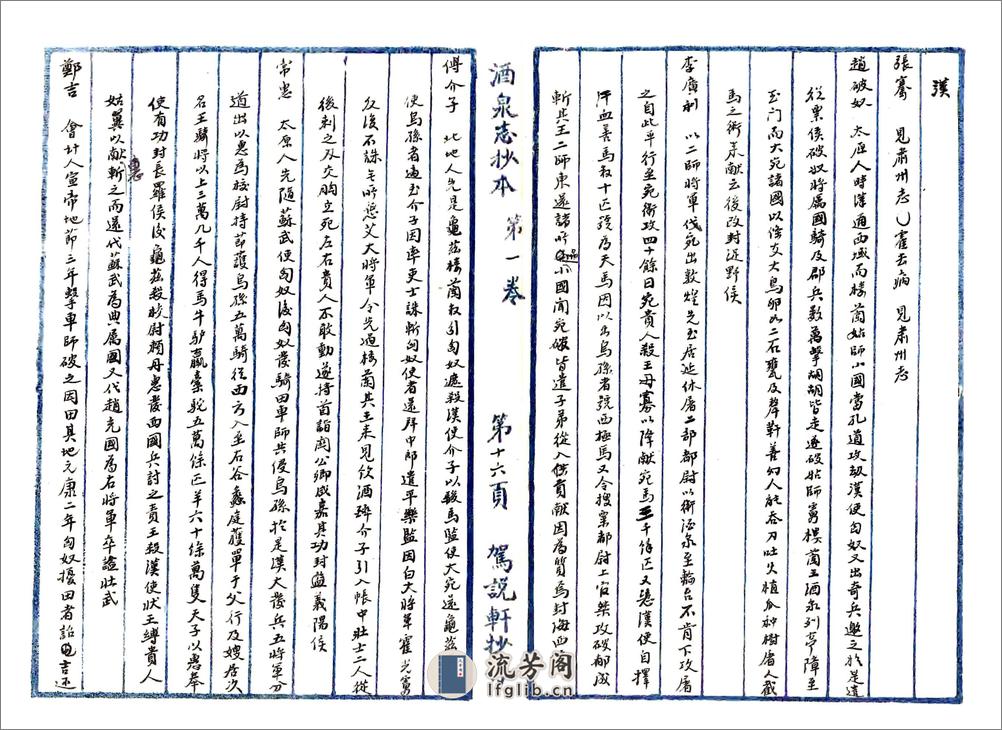 漢
張騫　見肅州志　霍去病　見肅州志
趙破奴　太原人時漢通西域而樓蘭姑師小國當孔道攻劫漢使匈奴又出奇兵遮之於是遣
從票侯破奴將屬國騎及郡兵數萬擊胡胡皆走遂破姑師虜樓蘭王酒泉列亭障至
玉门而大宛諸國以條支大鳥卵如二石甕及犛靬善幻人能吞刀吐火植瓜种樹屠人截
馬之術来献云後改封浞野侯
李廣利　以二師將軍伐宛出敦煌先至居延休屠二部都尉以衛酒泉至輪台不肯下攻屠
之自此平行至宛衛攻四十餘日宛貴人殺王母寡以降献宛馬三千餘匹又選漢使自擇
汗血善馬数十匹號為天馬因以烏孫者號西極馬又令搜粟都尉上官桀攻破郁成
斬其王二師東遂諸所過小國聞宛破皆遣子弟從入供貢献因為質焉封海西
酒泉志抄本　第一卷　　第十六頁　駕說軒抄
傅介子　北地人先是龜茲樓蘭数引匈奴遮殺漢使介子以駿馬監使大宛遂龜茲
使烏孫者過至介子因率吏士誅斬匈奴使者還拜中郎遷平樂監因白大將軍霍光寫
反復不誅無所懲艾大將軍令先過樓蘭其王来見飲酒醉介子引入帳中壯士二人從
後刺之及交胸立死左右貴人不敢動遂持首詣闕公卿咸嘉其功封義陽侯
常惠　太原人先隨蘇武使匈奴後匈奴發騎田車師共侵烏孫於是漢大發兵五將軍分
道出以惠為校尉持節護烏孫五萬騎從西方入至右谷蠡庭獲單于父行及嫂居次
名王騎將以上三萬九千人得馬牛驴驘橐駝五萬餘匹羊六十餘萬隻天子以惠奉
使有功封長羅侯後龜茲殺校尉賴丹惠發西國兵討之責王殺漢使狀王縛貴人
姑翼以献惠斬之而還代蘇武為典屬國又代趙充國為右將軍卒諡壯武
鄭吉　會計人宣帝地節三年擊車師破之因田其地元康二年匈奴擾田者詔吉还
流芳阁
lfglib.cn